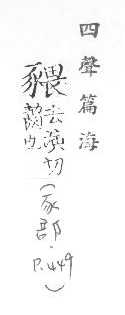 四聲篇海
去演切
(豕部.P.449)